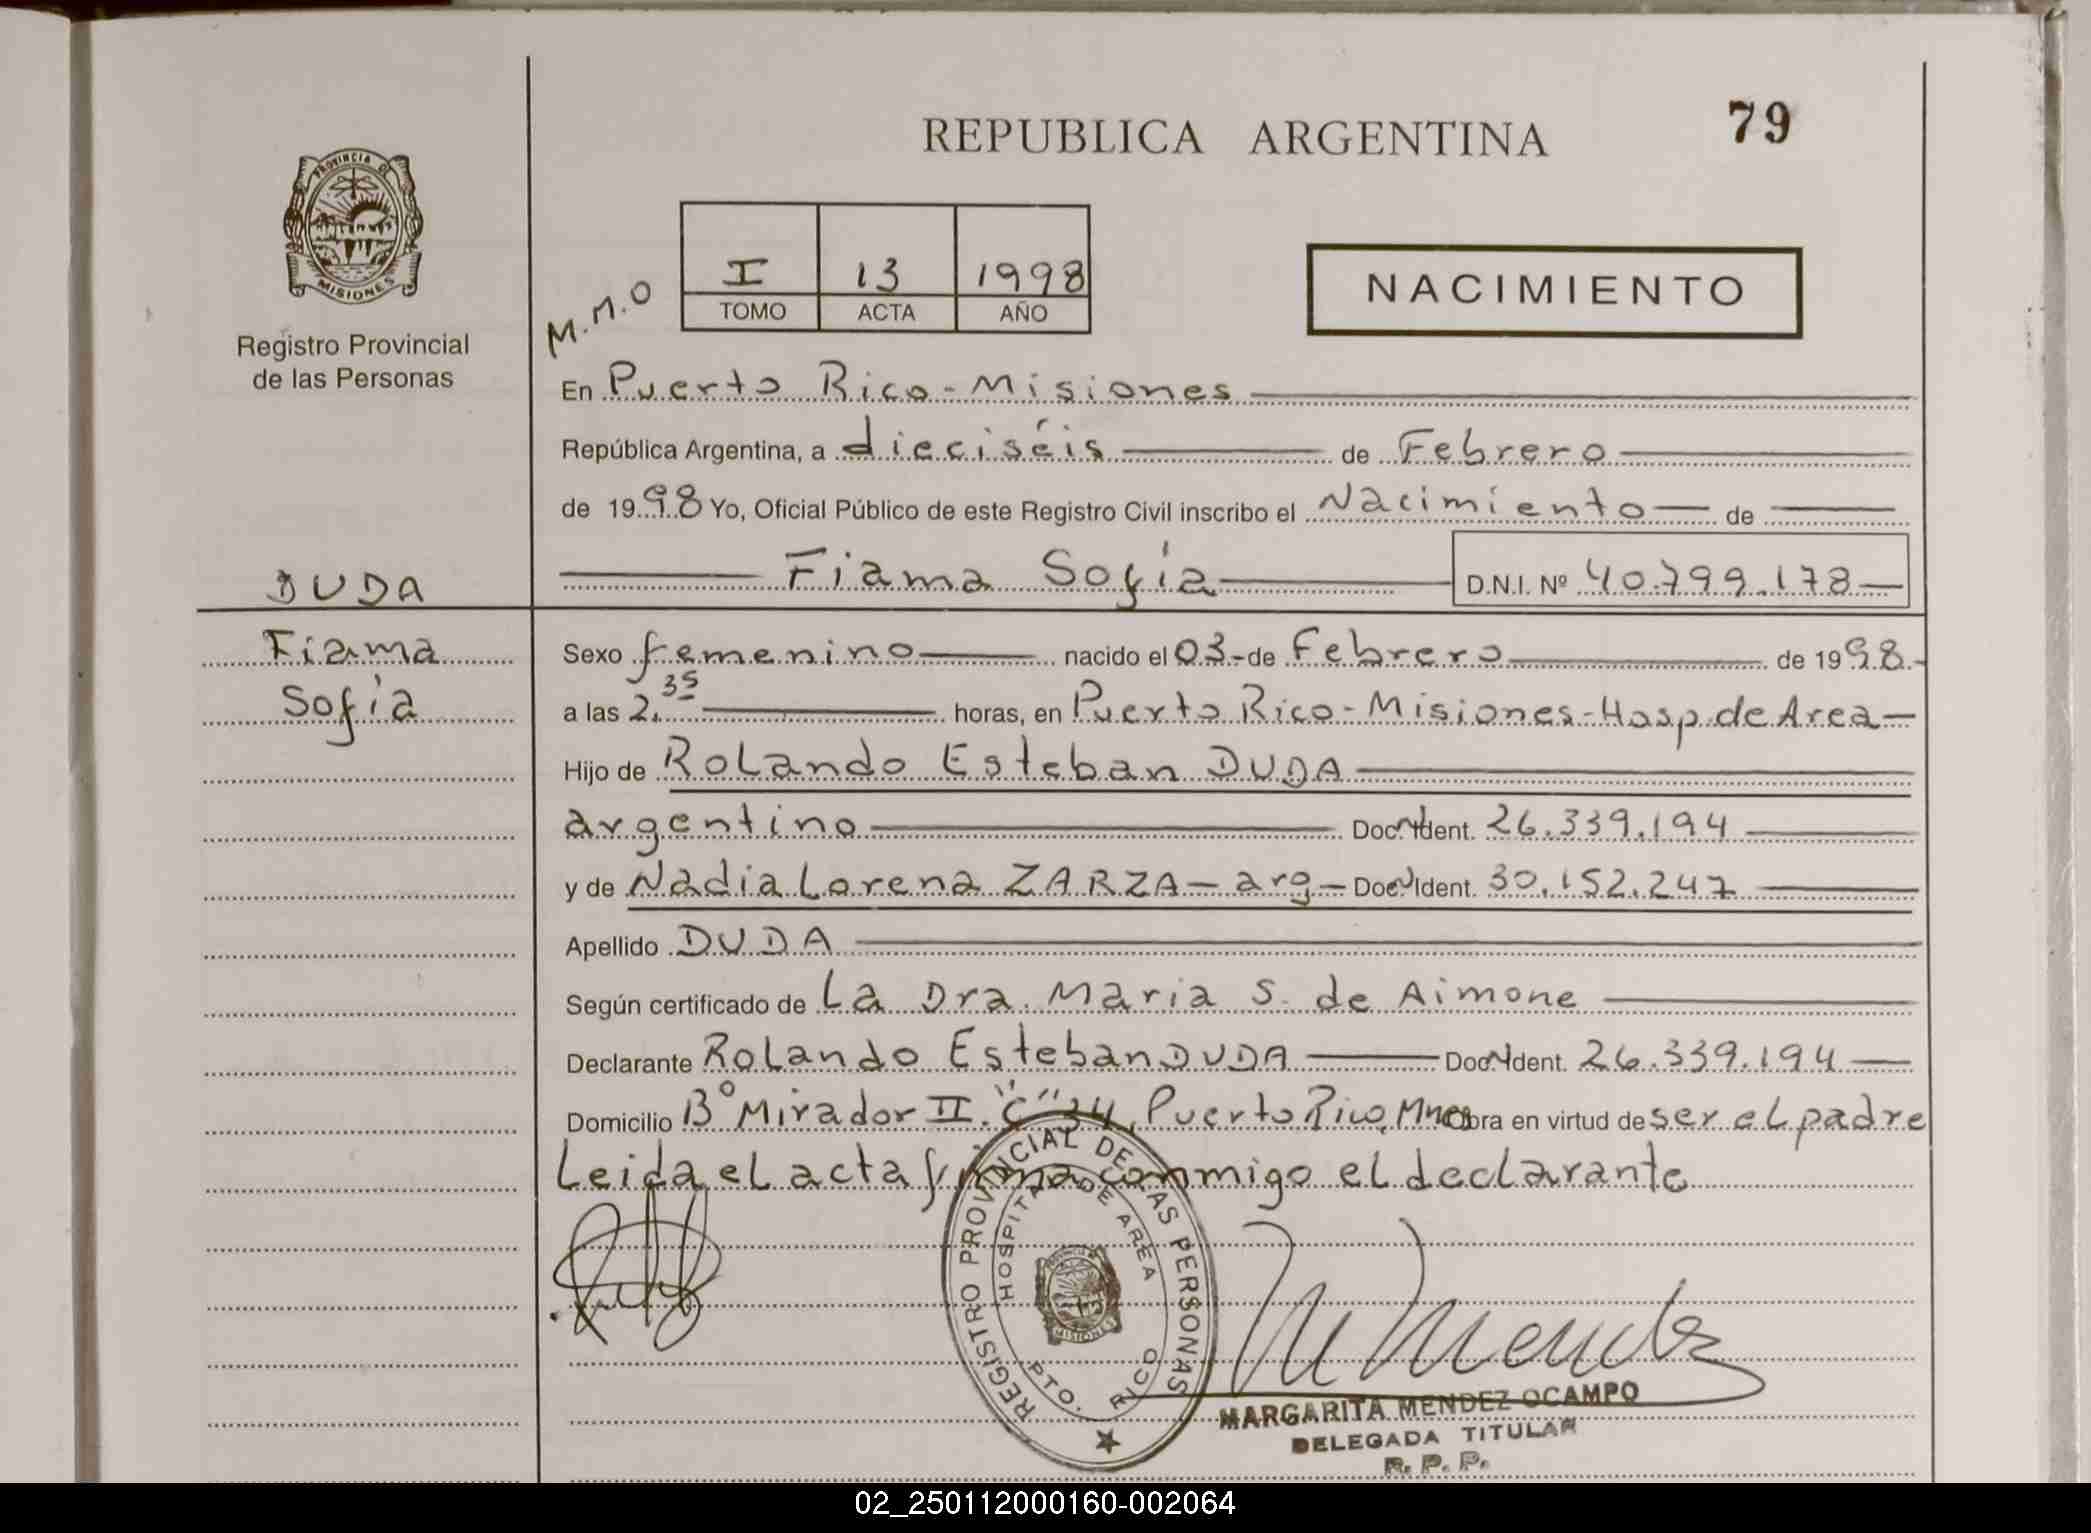 REPUBLICA ARGENTINA
79
PROVINCIA DE
MISIONES
Registro Provincial
de las Personas
M.M.O
I 13 1998
TOMO ACTA AÑO
NACIMIENTO
En Puerto Rico - Misiones
República Argentina, a dieciséis de Febrero
de 1998 Yo, Oficial Público de este Registro Civil inscribo el Nacimiento de
Fiama Sofía D.N.I. Nº 40.799.178
DUDA
Fiama
Sofía
Sexo femenino nacido el 03 - de Febrero de 1998.-
a las 2.35 horas, en Puerto Rico - Misiones - Hosp. de Area
Hijo de Rolando Esteban DUDA
argentino Doc. Ident. 26.339.194
y de Nadia Lorena ZARZA - arg - Doc. Ident. 30.152.247
Apellido DUDA
Según certificado de La Dra. Maria S. de Aimone
Declarante Rolando Esteban DUDA Doc. Ident. 26.339.194
Domicilio Bº Mirador II. "C" 34, Puerto Rico, Mnes Obra en virtud de ser el padre
Leida el acta firma conmigo el declarante
REGISTRO PROVINCIAL DE LAS PERSONAS
HOSPITAL DE AREA
PTO. RICO
MISIONES
M Mendez
MARGARITA MENDEZ OCAMPO
DELEGADA TITULAR
R. P. P.
02_250112000160-002064